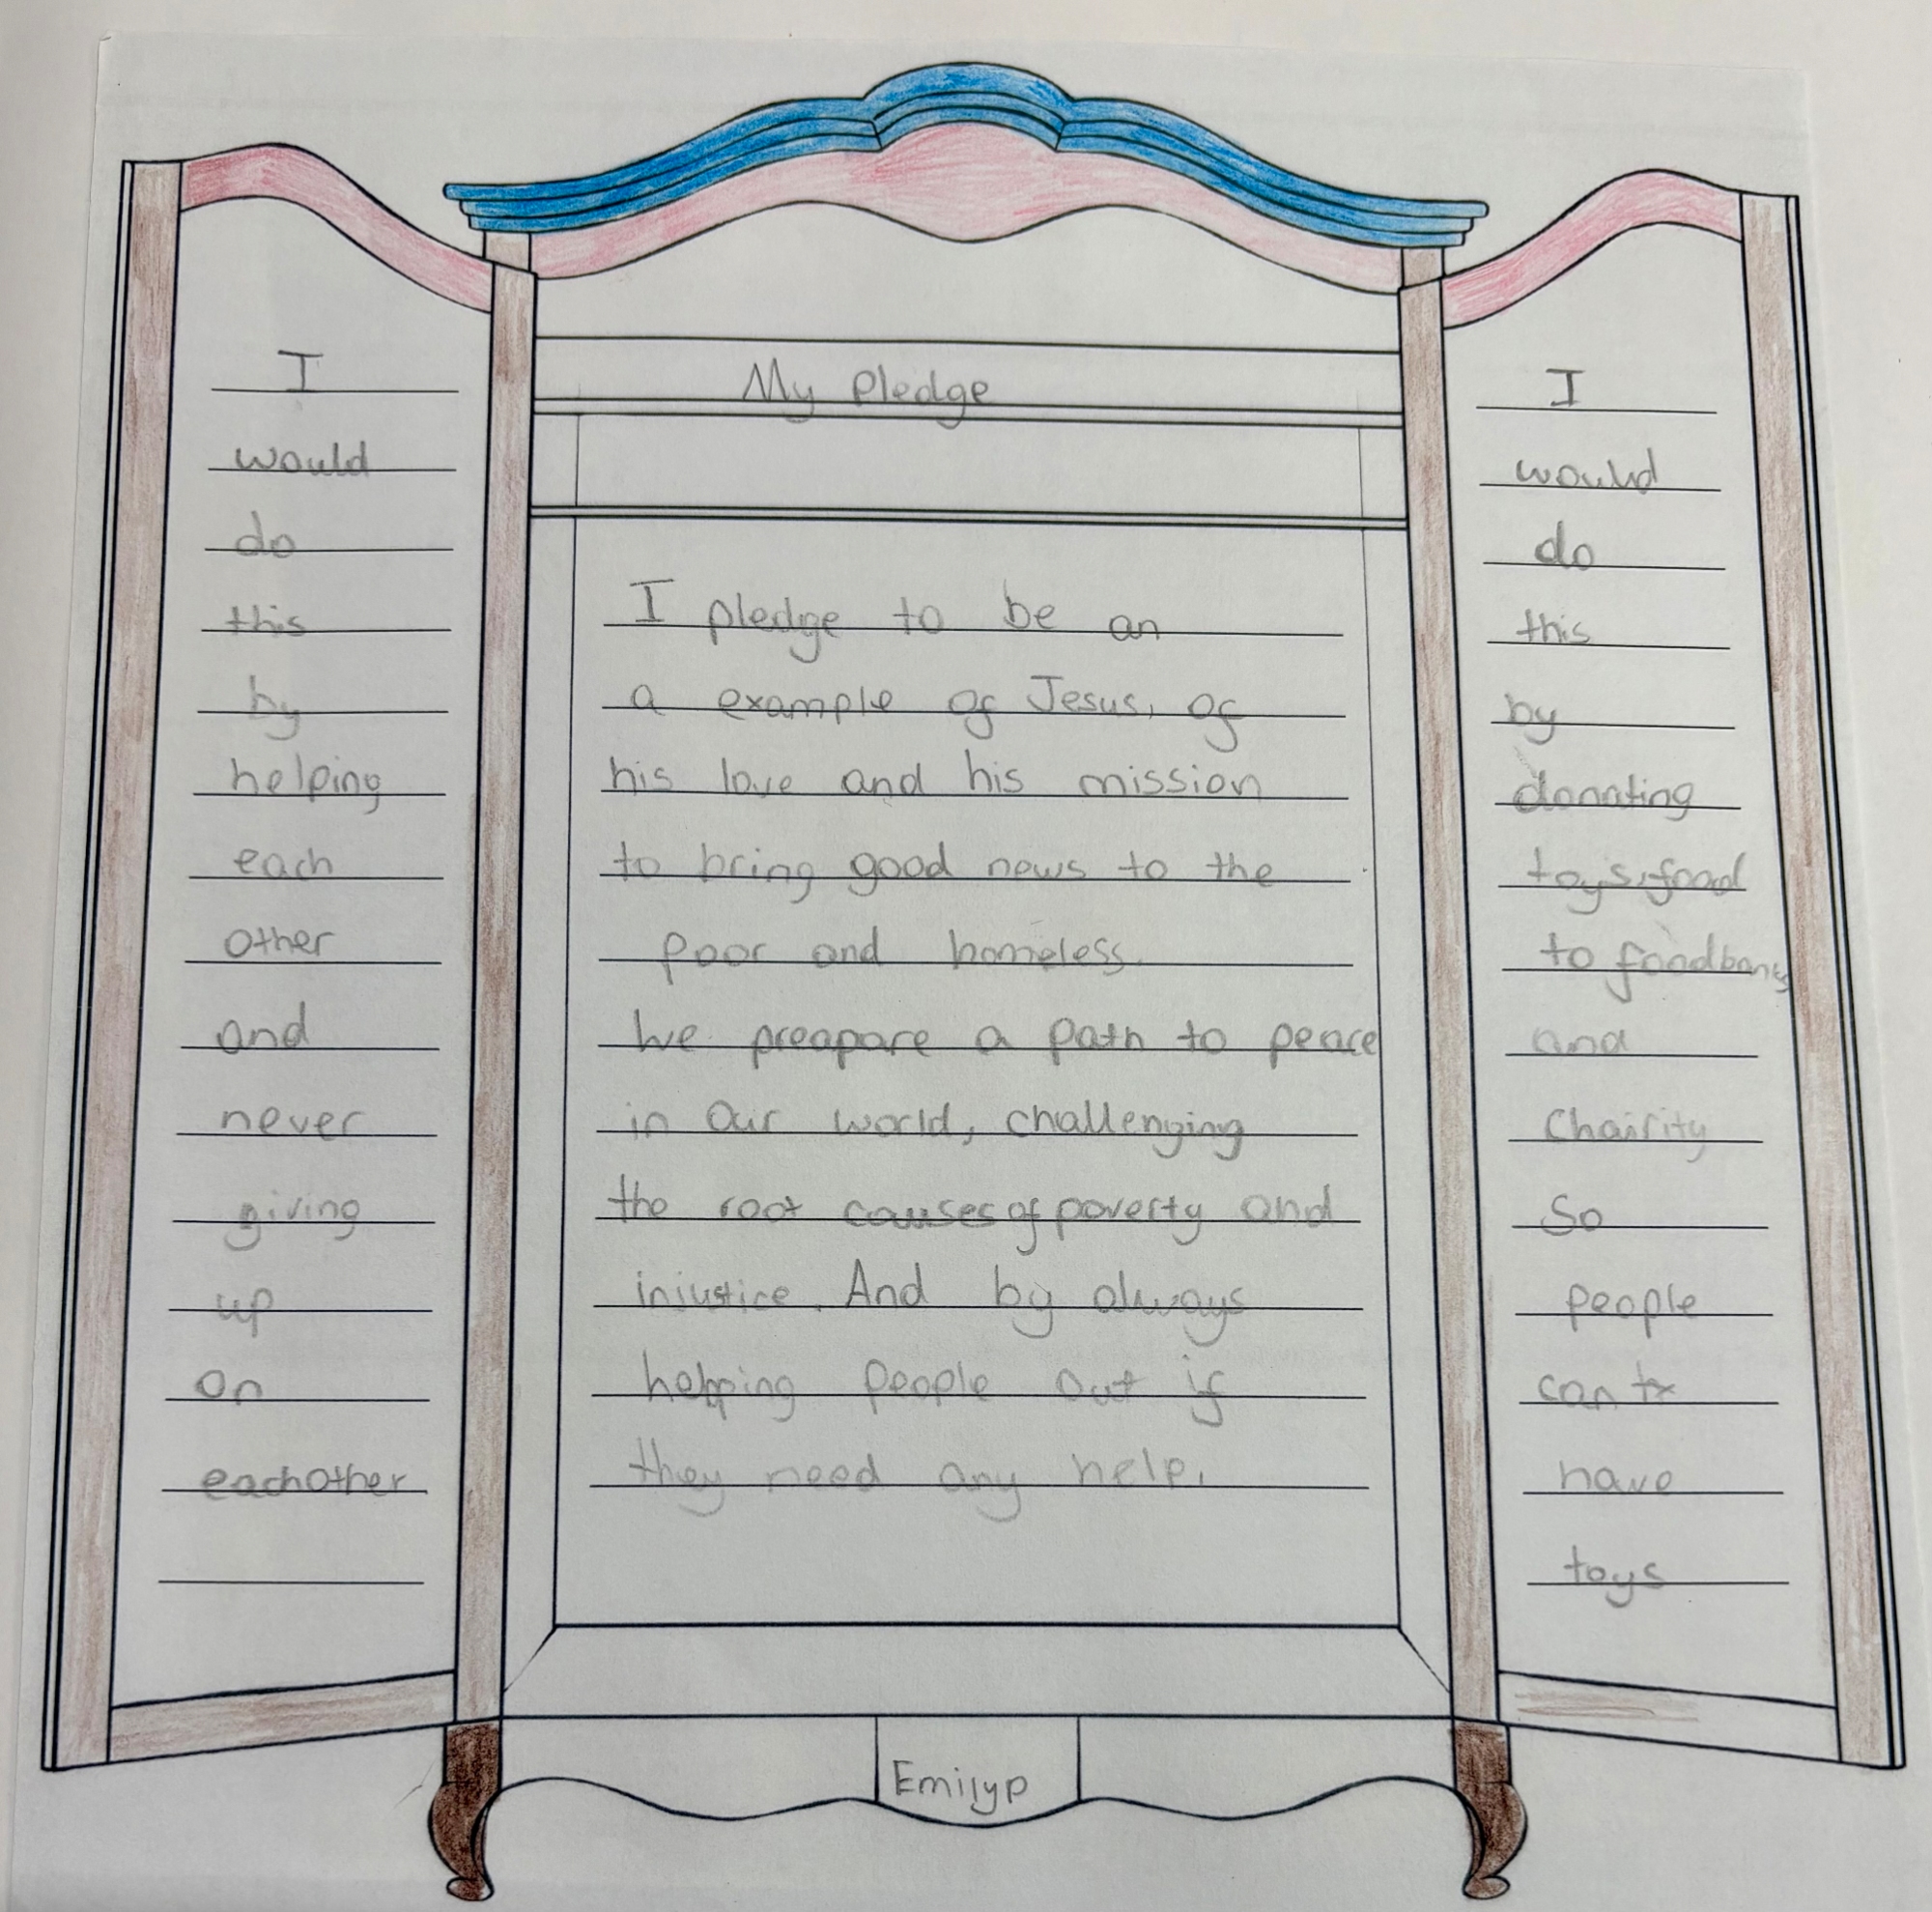 I
would
do
this
by
helping
each
other
and
never
giving
up
on
eachother
My Pledge
I pledge to be an
a example of Jesus, of
his love and his mission
to bring good news to the
poor and homeless.
We preapare a path to peace
in our world, challenging
the root causes of poverty and
injustice. And by always
helping people out if
they need any help.
Emilyp
I
would
do
this
by
donating
toys,food
to foodbanks
and
Chairity
So
people
can tx
have
toys